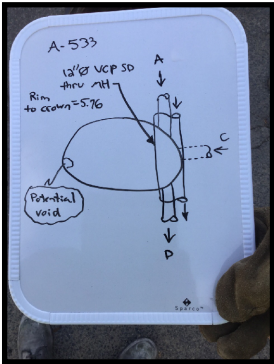 A-533
12"Ø VCP SD
thru MH
Rim
to crown = 5.76
A
C
Potential
void
D
Sparco™